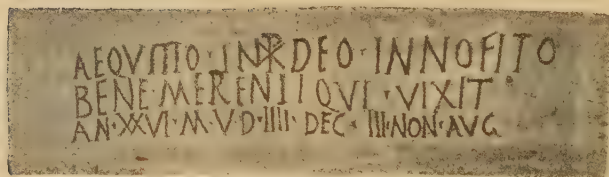 AEQVITIO · IN ☧ DEO · INNOFITO
BENE·MERENTI QVI · VIXIT
AN·XXVI·M·V·D·IIII· DEC · III·NON·AVG